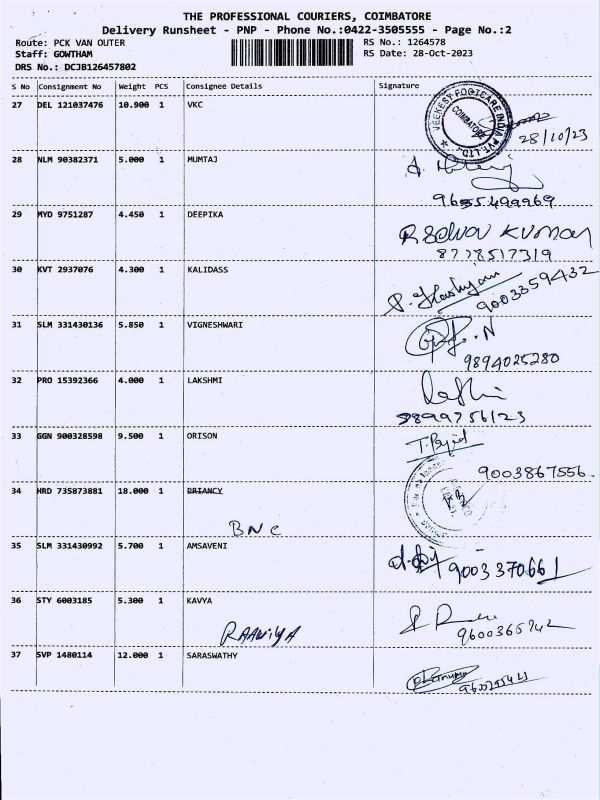 THE PROFESSIONAL COURIERS, COIMBATORE
Delivery Runsheet - PNP - Phone No.:0422-3505555 - Page No.:2
Route: PCK VAN OUTER RS No.: 1264578
Staff: GOWTHAM RS Date: 28-Oct-2023
DRS No.: DCJB126457802
S No Consignment No Weight PCS Consignee Details Signature
27 DEL 121037476 10.900 1 VKC
VEEKESY FOOTCARE INDIA PVT. LTD COIMBATORE
28/10/23
28 NLM 90382371 5.000 1 MUMTAJ
9655499969
29 MYD 9751287 4.450 1 DEEPIKA
R Selva Kumar
8778517319
30 KVT 2937076 4.300 1 KALIDASS
9003359432
31 SLM 331430136 5.850 1 VIGNESHWARI
9894025280
32 PRO 15392366 4.000 1 LAKSHMI
9899756123
33 GGN 900328598 9.500 1 ORISON
9003867556
34 HRD 735873881 18.000 1 DRIANCY
BNC
35 SLM 331430992 5.700 1 AMSAVENI
9003370661
36 STY 6003185 5.300 1 KAVYA
9600365742
37 SVP 1480114 12.000 1 SARASWATHY